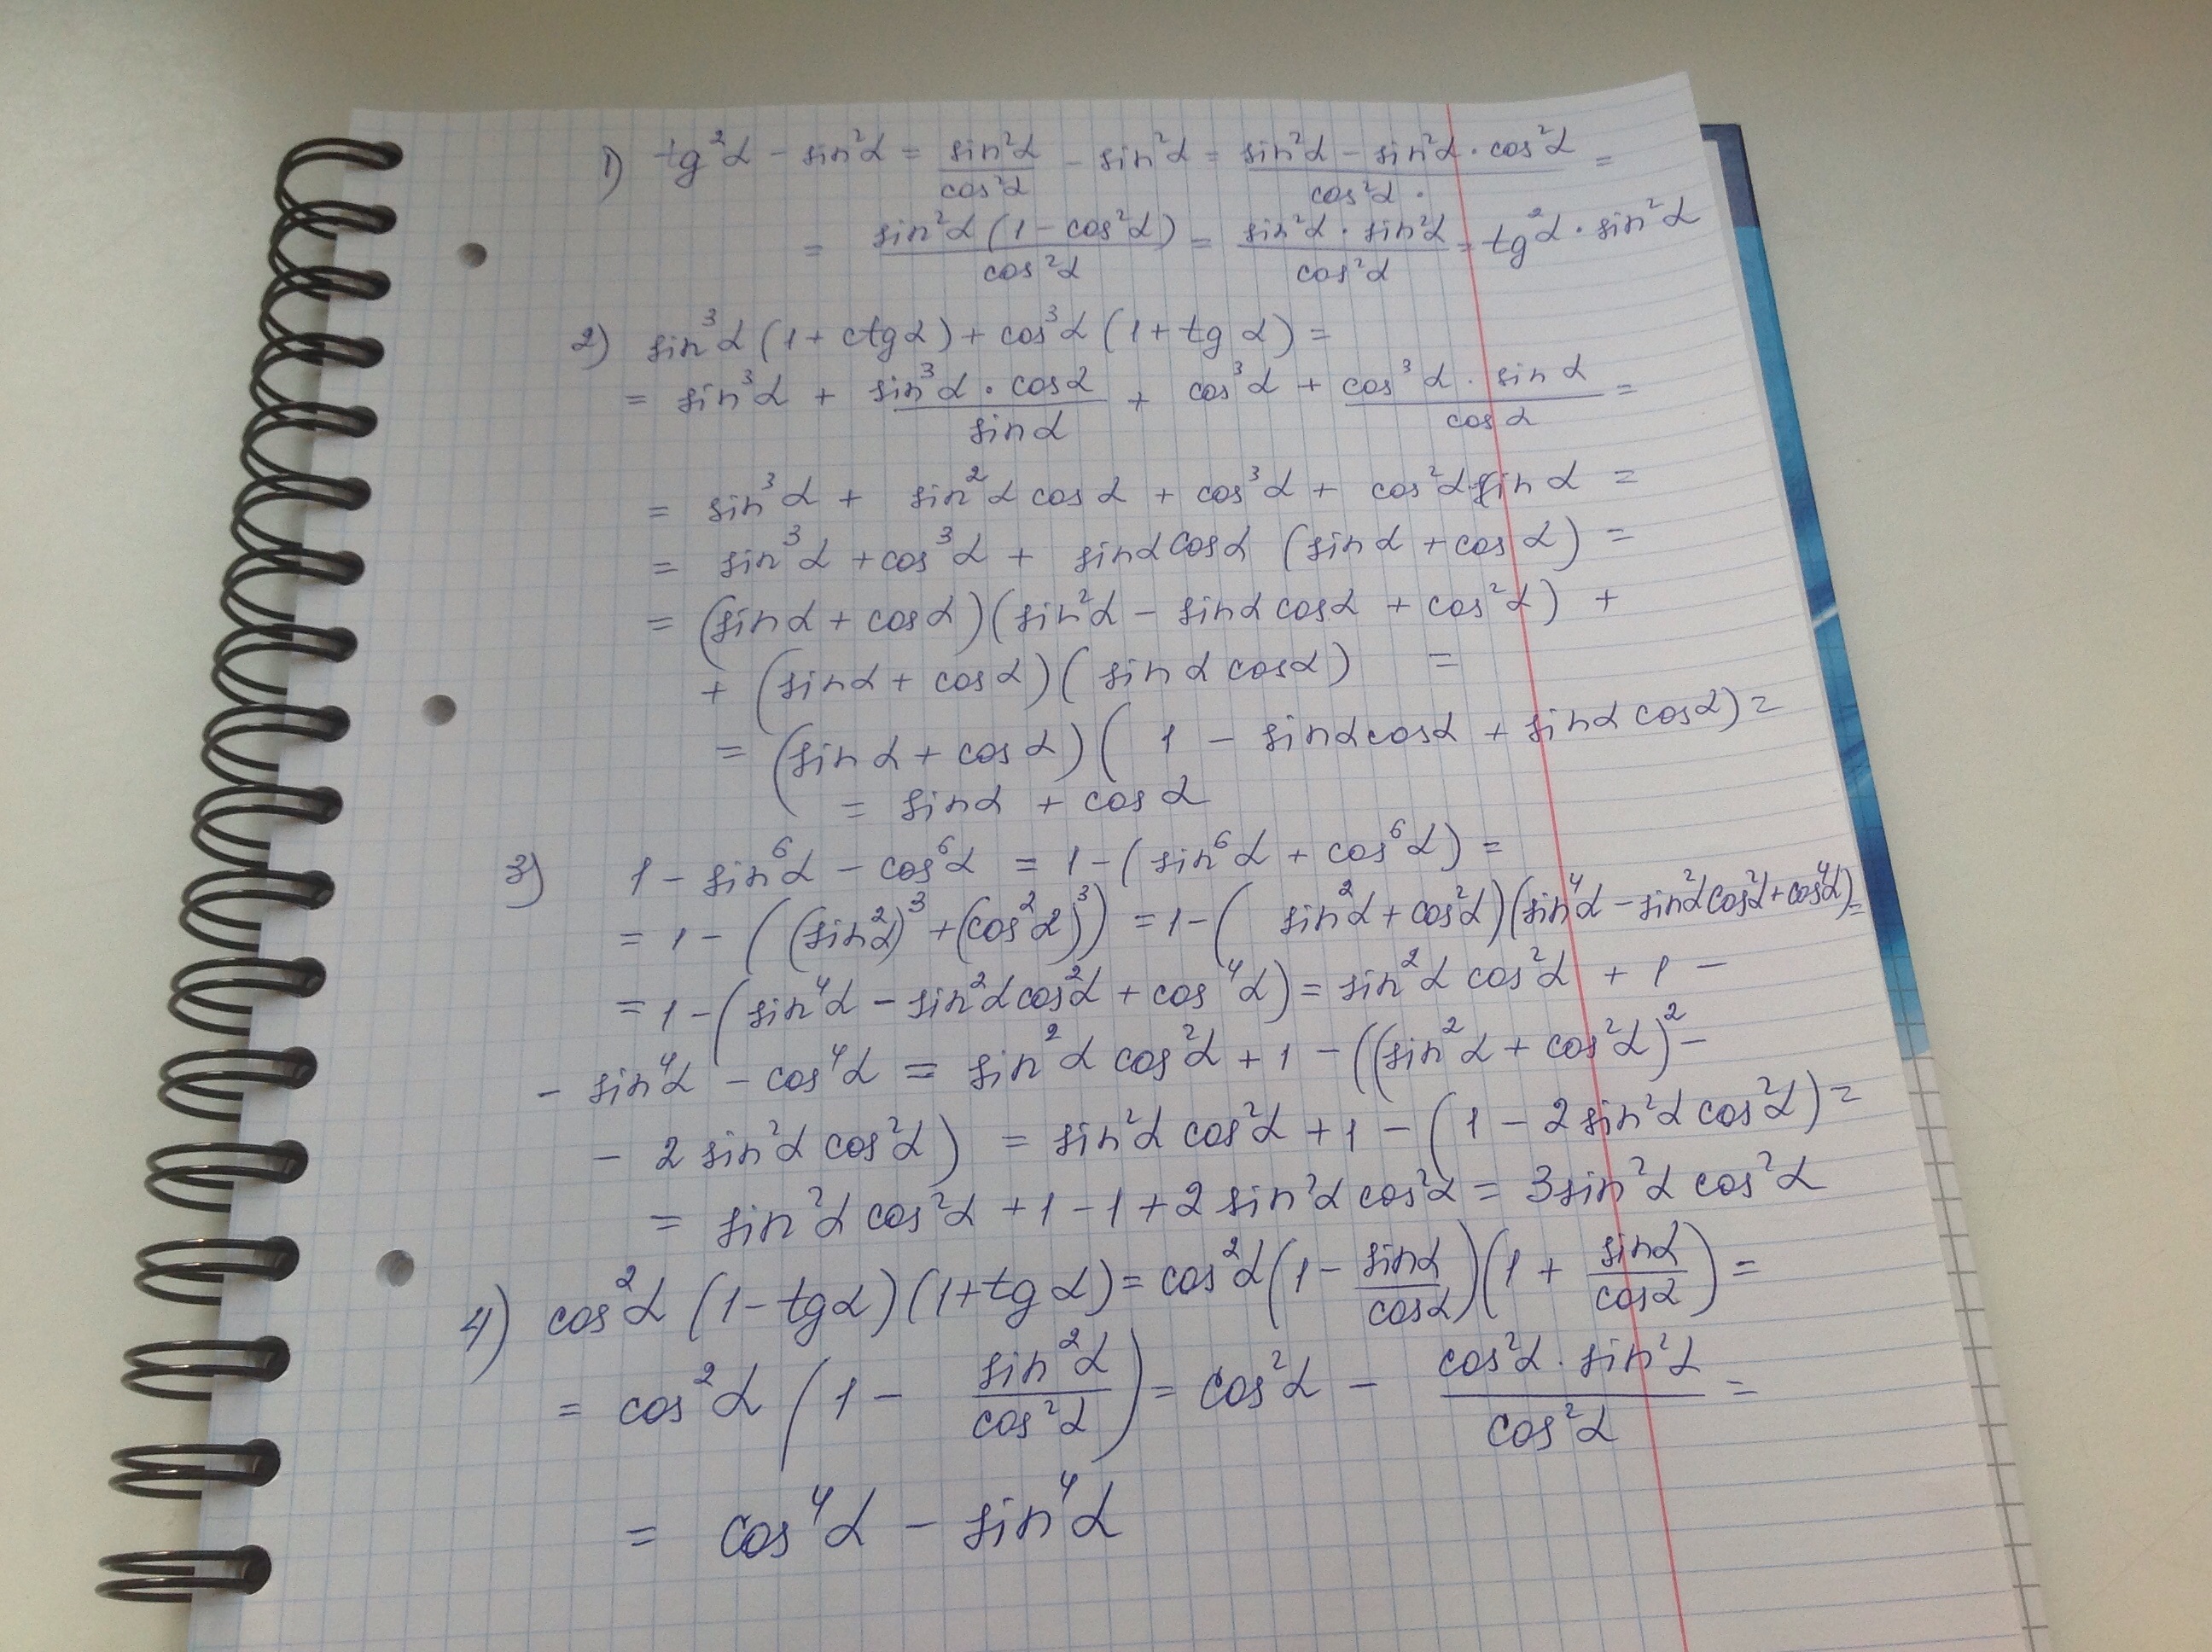 1) tg²α - sin²α = sin²α/cos²α - sin²α = (sin²α - sin²α · cos²α)/cos²α =
= sin²α (1 - cos²α)/cos²α = sin²α · sin²α/cos²α = tg²α · sin²α
2) sin³α (1 + ctgα) + cos³α (1 + tg α) =
= sin³α + sin³α · cosα/sinα + cos³α + cos³α · sinα/cosα =
= sin³α + sin²α cosα + cos³α + cos²α sinα =
= sin³α + cos³α + sinα cosα (sinα + cosα) =
= (sinα + cosα)(sin²α - sinα cosα + cos²α) +
+ (sinα + cosα)(sinα cosα) =
= (sinα + cosα)(1 - sinα cosα + sinα cosα) =
= sinα + cosα
3) 1 - sin⁶α - cos⁶α = 1 - (sin⁶α + cos⁶α) =
= 1 - ((sin²α)³ + (cos²α)³) = 1 - (sin²α + cos²α)(sin⁴α - sin²α cos²α + cos⁴α) =
= 1 - (sin⁴α - sin²α cos²α + cos⁴α) = sin²α cos²α + 1 -
- sin⁴α - cos⁴α = sin²α cos²α + 1 - ((sin²α + cos²α)² -
- 2 sin²α cos²α) = sin²α cos²α + 1 - (1 - 2 sin²α cos²α) =
= sin²α cos²α + 1 - 1 + 2 sin²α cos²α = 3 sin²α cos²α
4) cos²α (1 - tgα)(1 + tg α) = cos²α (1 - sinα/cosα)(1 + sinα/cosα) =
= cos²α (1 - sin²α/cos²α) = cos²α - cos²α · sin²α/cos²α =
= cos⁴α - sin⁴α